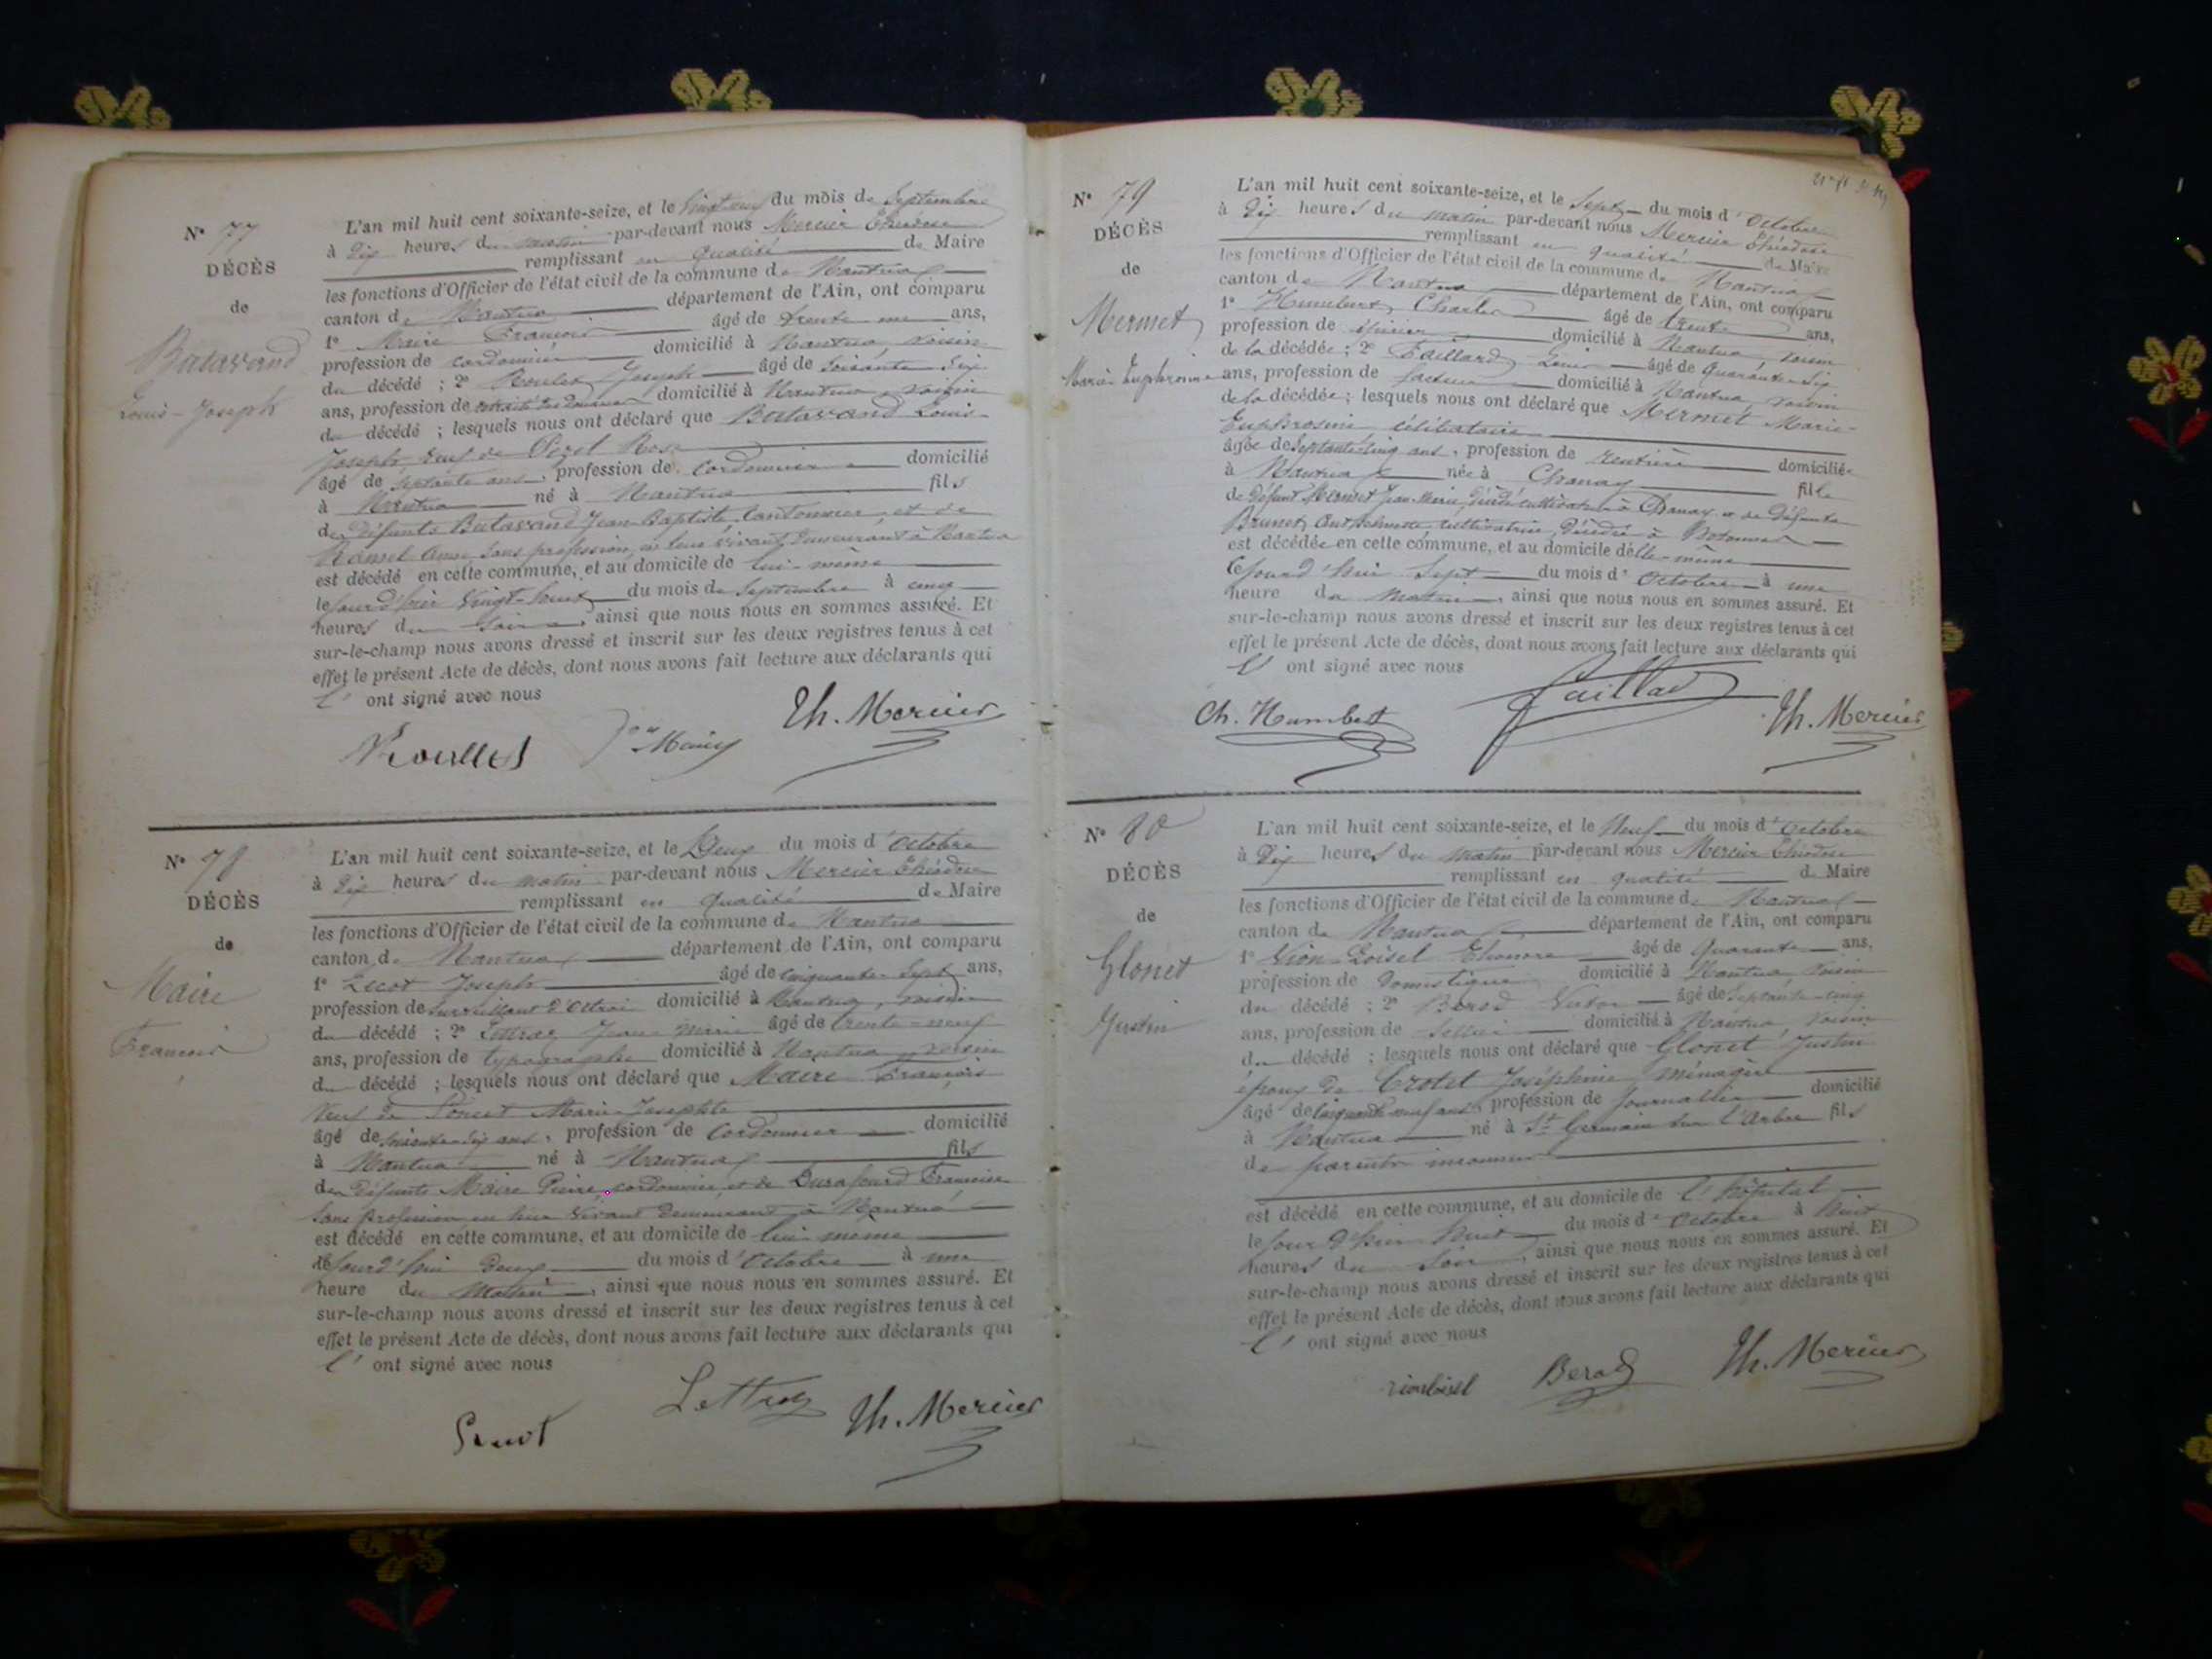 N° 77
DÉCÈS
de
Balavand
Louis-Joseph
L'an mil huit cent soixante-seize, et le du mois de Septembre
à dix heures du matin par-devant nous Mercier Théodore
remplissant en qualité de Maire
les fonctions d'Officier de l'état civil de la commune de Nantua
canton de Nantua département de l'Ain, ont comparu
1° Maire François âgé de trente ans,
profession de cordonnier domicilié à Nantua, voisin
du décédé ; 2° Joseph âgé de soixante-dix
ans, profession de retraité des douanes domicilié à Nantua voisin
du décédé ; lesquels nous ont déclaré que Balavand Louis-
Joseph, veuf de Rose
âgé de septante ans, profession de cordonnier domicilié
à Nantua né à Nantua fils
des défunts Balavand Jean-Baptiste, cantonnier, et de
sans profession, en leur vivant demeurant à Nantua
est décédé en cette commune, et au domicile de lui-même
le jour d'hier vingt-huit du mois de Septembre à cinq
heures du soir, ainsi que nous nous en sommes assuré. Et
sur-le-champ nous avons dressé et inscrit sur les deux registres tenus à cet
effet le présent Acte de décès, dont nous avons fait lecture aux déclarants qui
l' ont signé avec nous
Th. Mercier
N° 78
DÉCÈS
de
Maire
François
L'an mil huit cent soixante-seize, et le Deux du mois d'Octobre
à dix heures du matin par-devant nous Mercier Théodore
remplissant en qualité de Maire
les fonctions d'Officier de l'état civil de la commune de Nantua
canton de Nantua département de l'Ain, ont comparu
1° Lecot Joseph âgé de cinquante-sept ans,
profession de surveillant d'octroi domicilié à Nantua, voisin
du décédé ; 2° Lettroz Jean-Marie âgé de trente-neuf
ans, profession de typographe domicilié à Nantua voisin
du décédé ; lesquels nous ont déclaré que Maire François
veuf de Poncet Marie-Josephte
âgé de soixante-dix ans, profession de cordonnier domicilié
à Nantua né à Nantua fils
des défunts Maire Pierre, cordonnier, et de Durafourd Françoise
sans profession en leur vivant demeurant à Nantua
est décédé en cette commune, et au domicile de lui-même
le jourd'hui deux du mois d'Octobre à une
heure du matin, ainsi que nous nous en sommes assuré. Et
sur-le-champ nous avons dressé et inscrit sur les deux registres tenus à cet
effet le présent Acte de décès, dont nous avons fait lecture aux déclarants qui
l' ont signé avec nous
Lettroz Th. Mercier
N° 79
DÉCÈS
de
Mermet
Marie Euphrosine
L'an mil huit cent soixante-seize, et le Sept du mois d'Octobre
à dix heures du matin par-devant nous Mercier Théodore
remplissant en qualité de Maire
les fonctions d'Officier de l'état civil de la commune de Nantua
canton de Nantua département de l'Ain, ont comparu
1° Humbert Charles âgé de trente ans,
profession de épicier domicilié à Nantua, voisin
de la décédée ; 2° Faillard Louis âgé de quarante-six
ans, profession de facteur domicilié à Nantua, voisin
de la décédée ; lesquels nous ont déclaré que Mermet Marie-
Euphrosine célibataire
âgée de septante-cinq ans, profession de rentière domiciliée
à Nantua née à Chanay fille
de défunt Mermet Jean-Marie, cultivateur à Chanay et de défunte
Brunet cultivatrice, décédée à
est décédée en cette commune, et au domicile d'elle-même
le jourd'hui Sept du mois d'Octobre à une
heure du matin, ainsi que nous nous en sommes assuré. Et
sur-le-champ nous avons dressé et inscrit sur les deux registres tenus à cet
effet le présent Acte de décès, dont nous avons fait lecture aux déclarants qui
l' ont signé avec nous
Ch. Humbert Faillard Th. Mercier
N° 80
DÉCÈS
de
Glonet
Justin
L'an mil huit cent soixante-seize, et le Neuf du mois d'Octobre
à dix heures du matin par-devant nous Mercier Théodore
remplissant en qualité de Maire
les fonctions d'Officier de l'état civil de la commune de Nantua
canton de Nantua département de l'Ain, ont comparu
1° Vion-Loisel âgé de quarante ans,
profession de domestique domicilié à Nantua voisin
du décédé ; 2° Berod Victor âgé de septante-cinq
ans, profession de sellier domicilié à Nantua, voisin
du décédé ; lesquels nous ont déclaré que Glonet Justin
époux de Crotet Joséphine ménagère
âgé de cinquante-neuf ans, profession de journalier domicilié
à Nantua né à St Germain sur l'Arbre fils
de parents inconnus
est décédé en cette commune, et au domicile de l'hôpital
le jour d'hier huit du mois d'Octobre à huit
heures du soir, ainsi que nous nous en sommes assuré. Et
sur-le-champ nous avons dressé et inscrit sur les deux registres tenus à cet
effet le présent Acte de décès, dont nous avons fait lecture aux déclarants qui
l' ont signé avec nous
Berod Th. Mercier